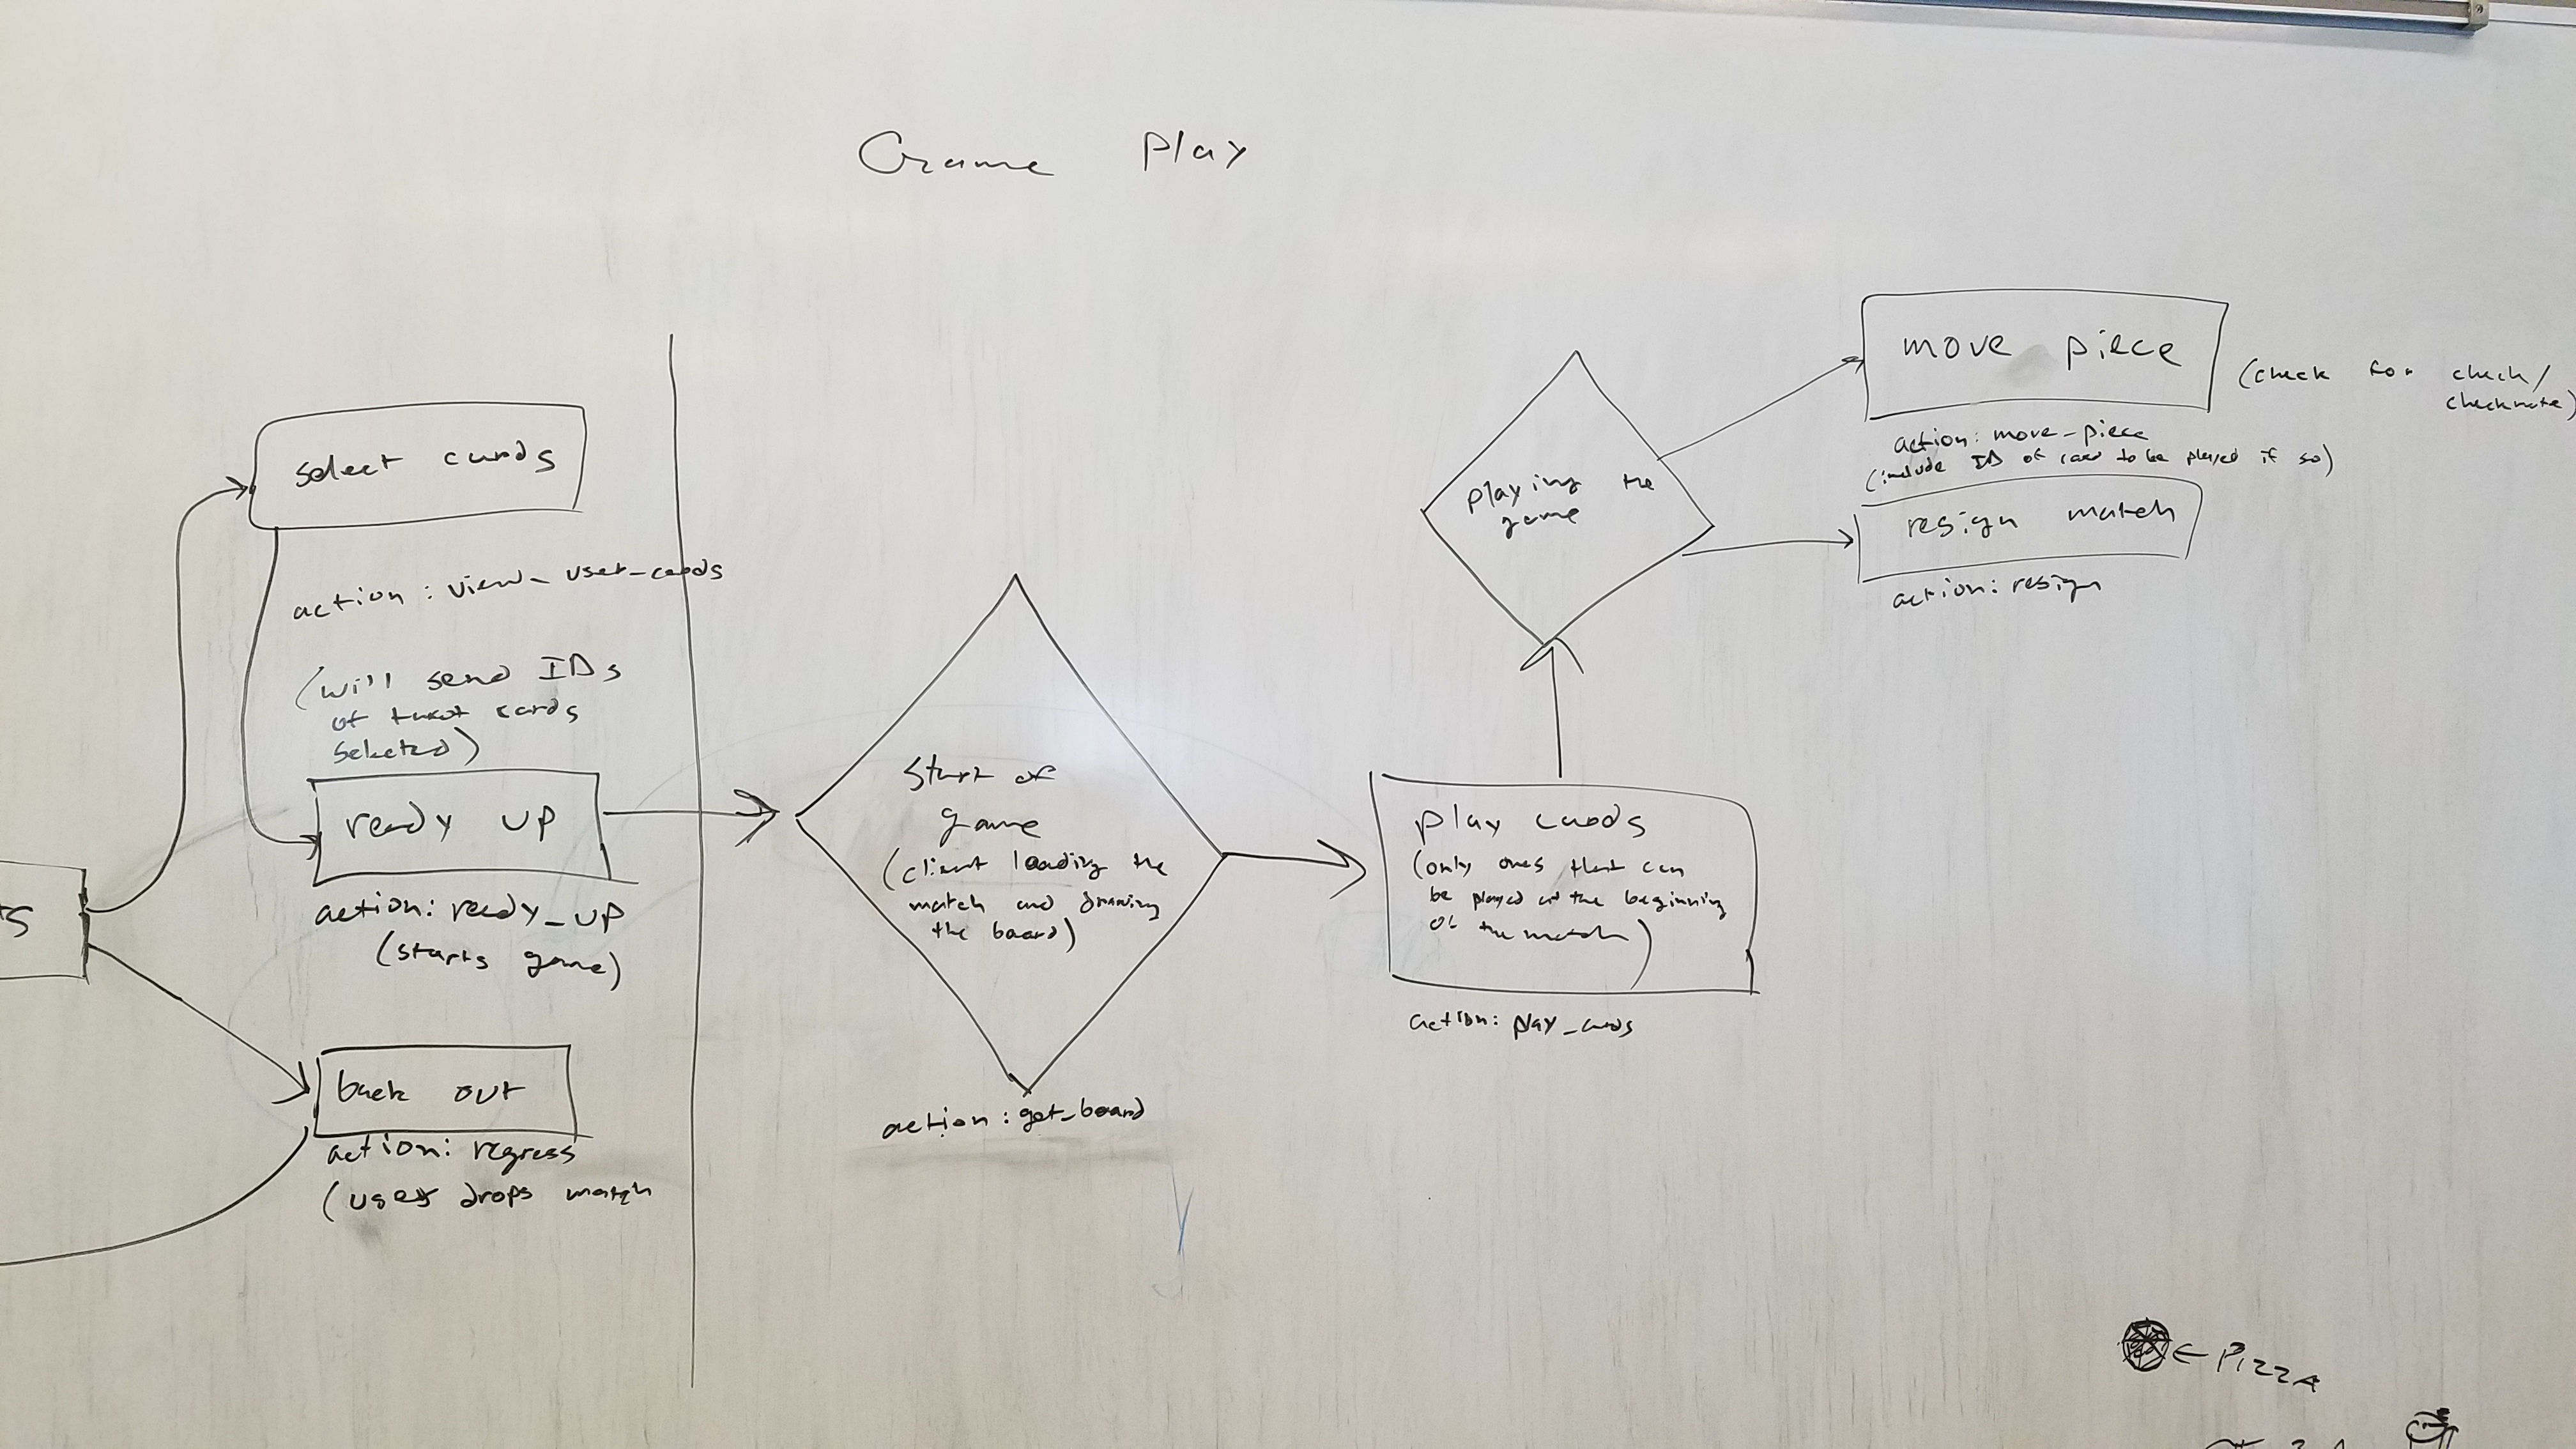 Game Play
select cards
action: view_user_cards
(will send IDs
of
cards
selected)
ready up
action: ready_up
(starts game)
ts
back out
action: regress
(user drops match
start of
game
(client loading the
match and drawing
the board)
action: get_board
play cards
(only ones that can
be played at the beginning
of the match)
action: play_cards
playing the
game
move piece
(check for check/
checkmate)
action: move_piece
(include ID of card to be played if so)
resign match
action: resign
← PIZZA